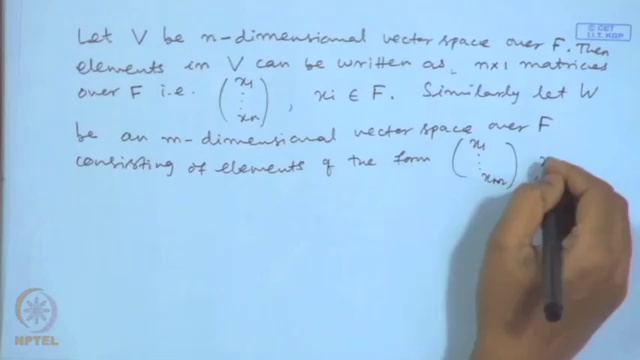 © CET
I.I.T. KGP
Let V be n-dimensional vector space over F. Then
elements in V can be written as, n×1 matrices
over F i.e. (x1 ⋮ xn), xi ∈ F. Similarly let W
be an m-dimensional vector space over F
consisting of elements of the form (x1 ⋮ xm) x
NPTEL